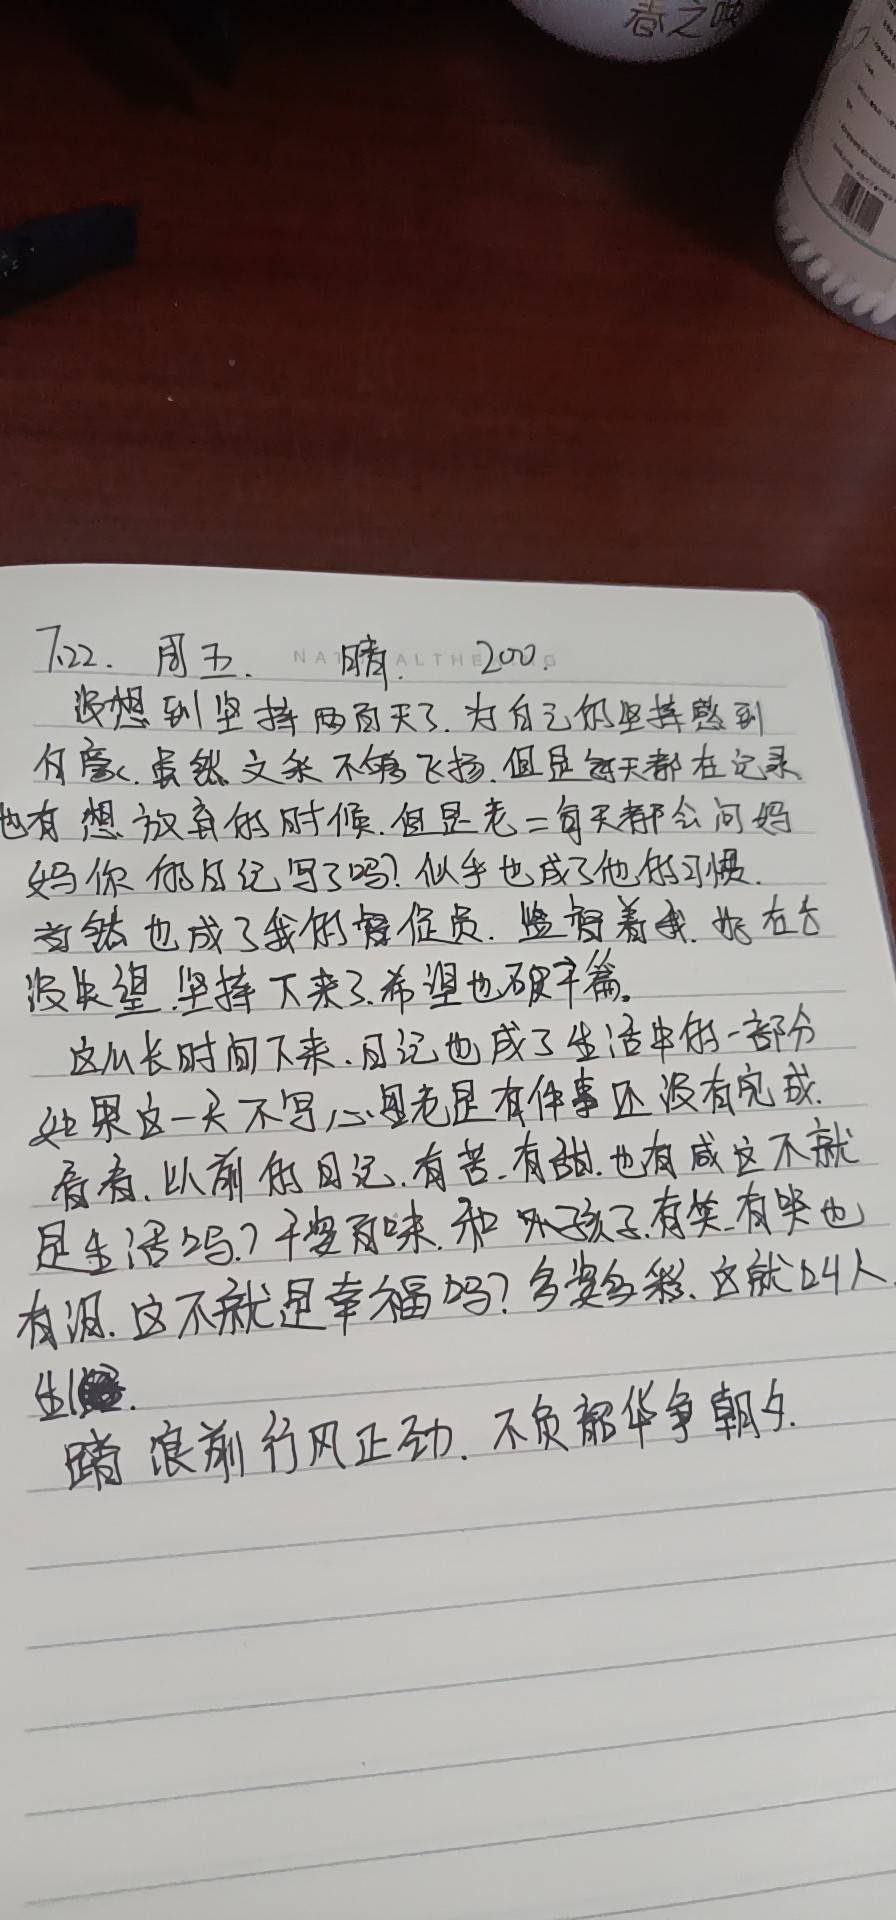 春之唤
7.22. 周五. 晴. 200.
没想到坚持两百天了.为自己的坚持感到
自豪.虽然文采不够飞扬.但是每天都在记录
也有想放弃的时候.但是老二每天都会问妈
妈你的日记写了吗?似乎也成了他的习惯.
当然也成了我的督促员.监督着我.好在
没失望.坚持下来了.希望也破千篇。
这么长时间下来.日记也成了生活中的一部分
如果这一天不写心里老是有件事还没有完成.
看看.以前的日记.有苦.有甜.也有咸这不就
是生活吗?千变百味.和孩子.有笑.有哭也
有泪.这不就是幸福吗?多姿多彩.这就叫人
生.
踏浪前行风正劲.不负韶华争朝夕.